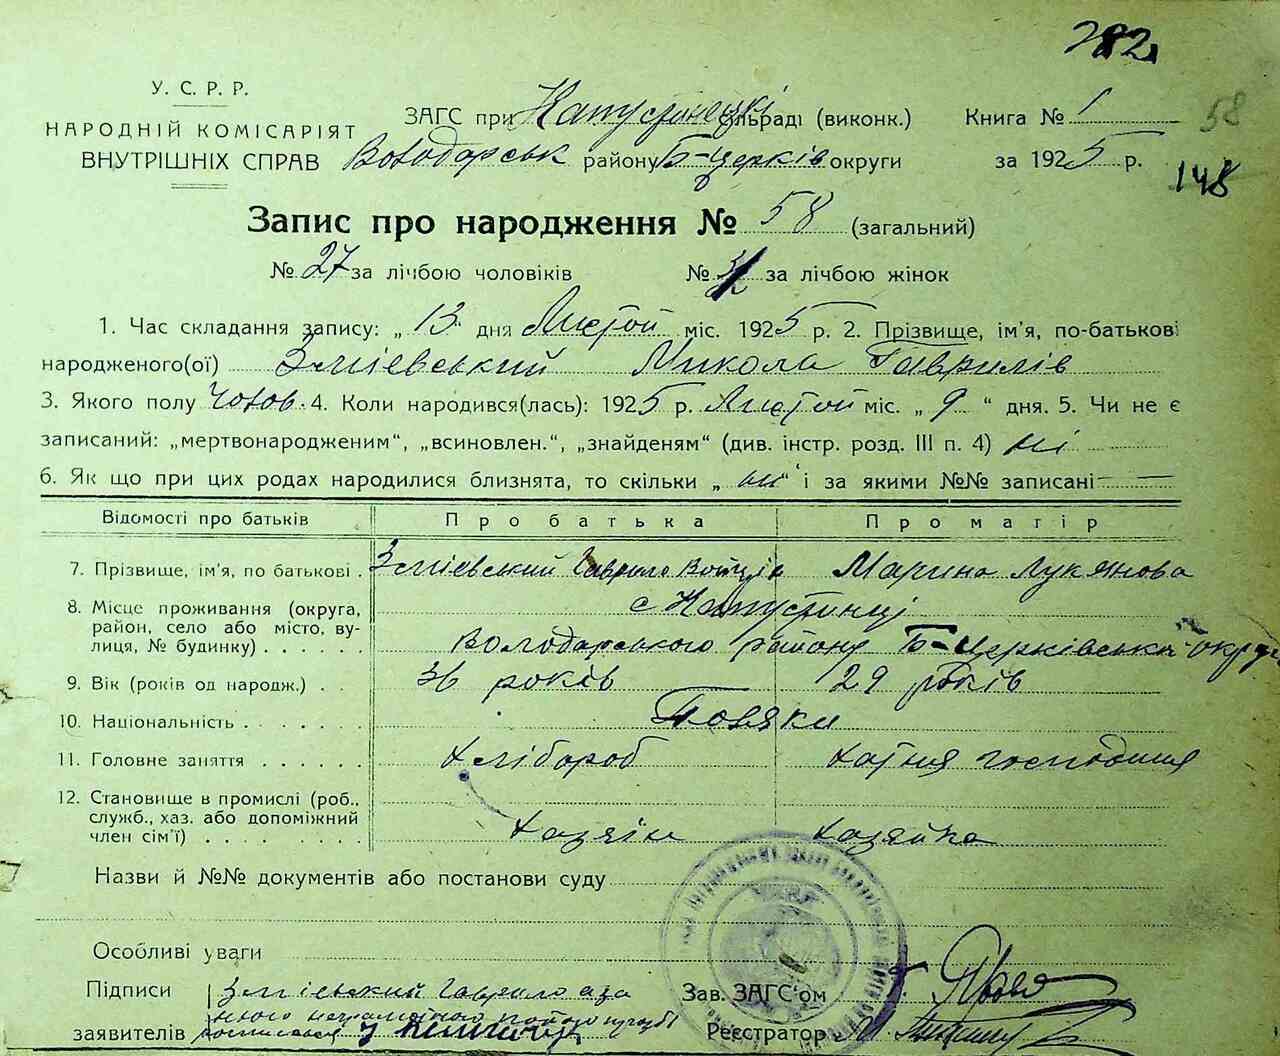 282
У. С. Р. Р.
НАРОДНІЙ КОМІСАРІЯТ
ВНУТРІШНІХ СПРАВ
ЗАГС при Капустинецькі сільраді (виконк.) Книга № 1
58
Володарськ району Б-Церків округи за 1925 р.
148
Запис про народження № 58 (загальний)
№ 27 за лічбою чоловіків № за лічбою жінок
1. Час складання запису: „ 13 дня Листопой міс. 1925 р. 2. Прізвище, ім'я, по-батькові
народженого(ої) Зміевський Микола Гаврилів
3. Якого полу Чолов. 4. Коли народився(лась): 1925 р. Листопой міс. „ 9 “ дня. 5. Чи не є
записаний: „мертвонародженим“, „всиновлен.“, „знайденям“ (див. інстр. розд. III п. 4) ні
6. Як що при цих родах народилися близнята, то скільки „ ні “ і за якими №№ записані — —
Відомості про батьків Про батька Про матір
7. Прізвище, ім'я, по батькові . Зміевський Гаврило Войців Марина Лукянова
8. Місце проживання (округа, с Капустинці
район, село або місто, ву-
лиця, № будинку) . . . . . . Володарського району Б-Церківськи округи
9. Вік (років од народж.) . . 36 років 29 років
10. Національність . . . . . . . Поляки
11. Головне заняття . . . . . . Хлібороб хатня господиня
12. Становище в промислі (роб.,
служб., хаз. або допоміжний
член сім'ї) . . . . . . . . Хазяїн хазяйка
Назви й №№ документів або постанови суду
Особливі уваги
Підписи Зміевский Гаврило а за
Зав. ЗАГС'ом
заявителів нього неграмотного
Реєстратор